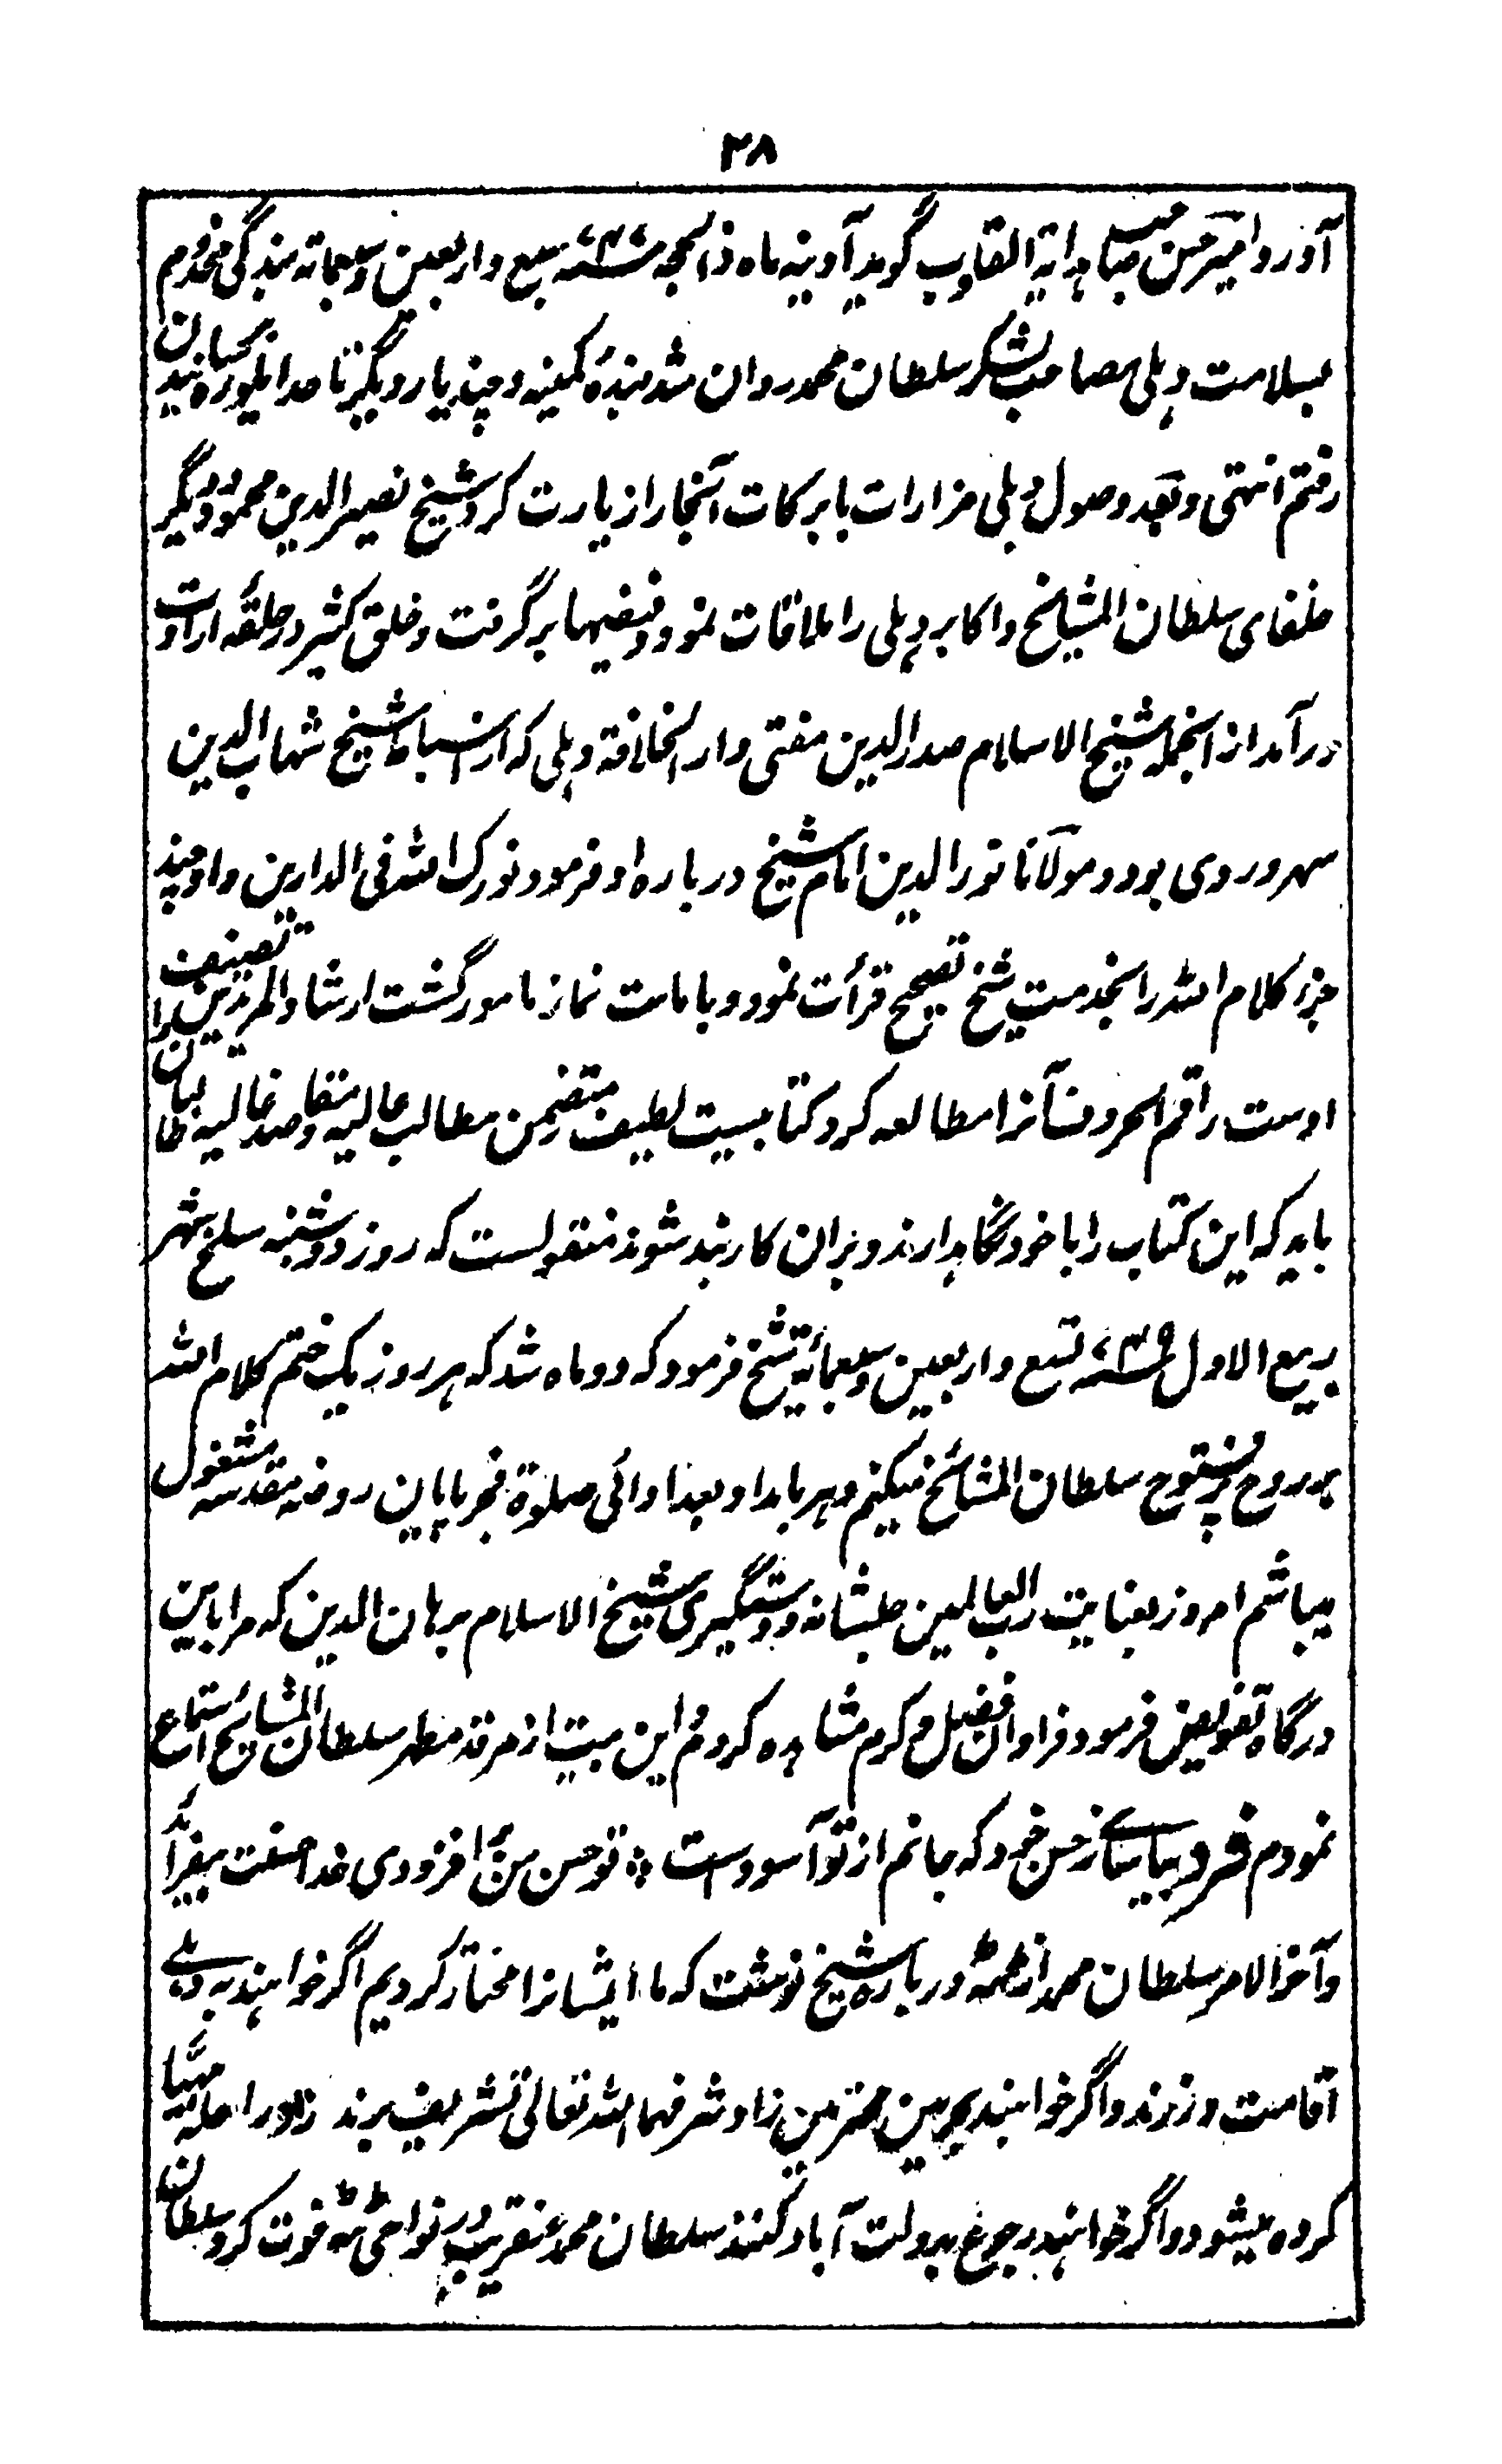 ۲۸
آورد امیر حسن صاحب هدایة القلوب گوید آدینه ماه ذالحجه سنه ۷۴۷ سبع و اربعین و سبعمائة بندگی مخدوم
بسلامت دهلی مصاحب لشکر سلطان محمد روان شد بندهٔ کمینه و چند یار دیگر تا حد ایلوره
رفتم انتهی و بعد وصول دهلی مزارات بابرکات آنجا را زیارت کرد و شیخ نصیر الدین محمود و دیگر
خلفای سلطان المشایخ و اکابر دهلی را ملاقات نمود و فیضها برگرفت و خلق کثیر در حلقهٔ ارادت او
در آمد از آنجمله شیخ الاسلام صدر الدین مفتی دار الخلافة دهلی که از اسباط شیخ شهاب الدین
سهروردی بود و مولانا نور الدین امام شیخ درباره او فرمود نورک الله فی الدارین و او چند
جزء کلام الله را بخدمت شیخ تصحیح قرأت نمود و بامامت نماز مامور گشت ارشاد المریدین تصنیف
اوست راقم الحروف آنرا مطالعه کرد کتابیست لطیف متضمن مطالب عالیه و مقاصد غالیه طالبان را
باید که این کتاب را با خود نگاهدارند و بران کاربند شوند منقولست که روز دوشنبه سلخ شهر
ربیع الاول سنه ۷۴۹ تسع و اربعین و سبعمائة شیخ فرمود که دو ماه شد که هر روز یک ختم کلام الله
بر روح پرفتوح سلطان المشائخ میکنم و هر بامداد بعد ادائی صلوة فجر بپایان روضه مقدسه مشغول
میباشم امروز بعنایت رب العالمین جلشانه و دستگیری شیخ الاسلام برهان الدین که مرا باین
درگاه تفویض فرمود فراوان فضل و کرم مشاهده کردم و این بیت از مرقد مطهر سلطان المشائخ استماع
نمودم فرد بیاسای ز حسن خود که جانم از تو آسودست ٭ تو حسن من افزودی خدا حسنت بیفزاید
و آخر الامر سلطان محمد از ٹھٹہ درباره شیخ نوشت که ما ایشانرا مختار کردیم اگر خواهند به دهلی
اقامت ورزند و اگر خواهند بحرمین محترمین زاد شرفهما الله تعالی تشریف برند زاد و راحله مهیا
کرده میشود و اگر خواهند رجوع بدولت آباد کنند سلطان محمد عنقریب در نواحی ٹھٹہ فوت کرد و سلطان